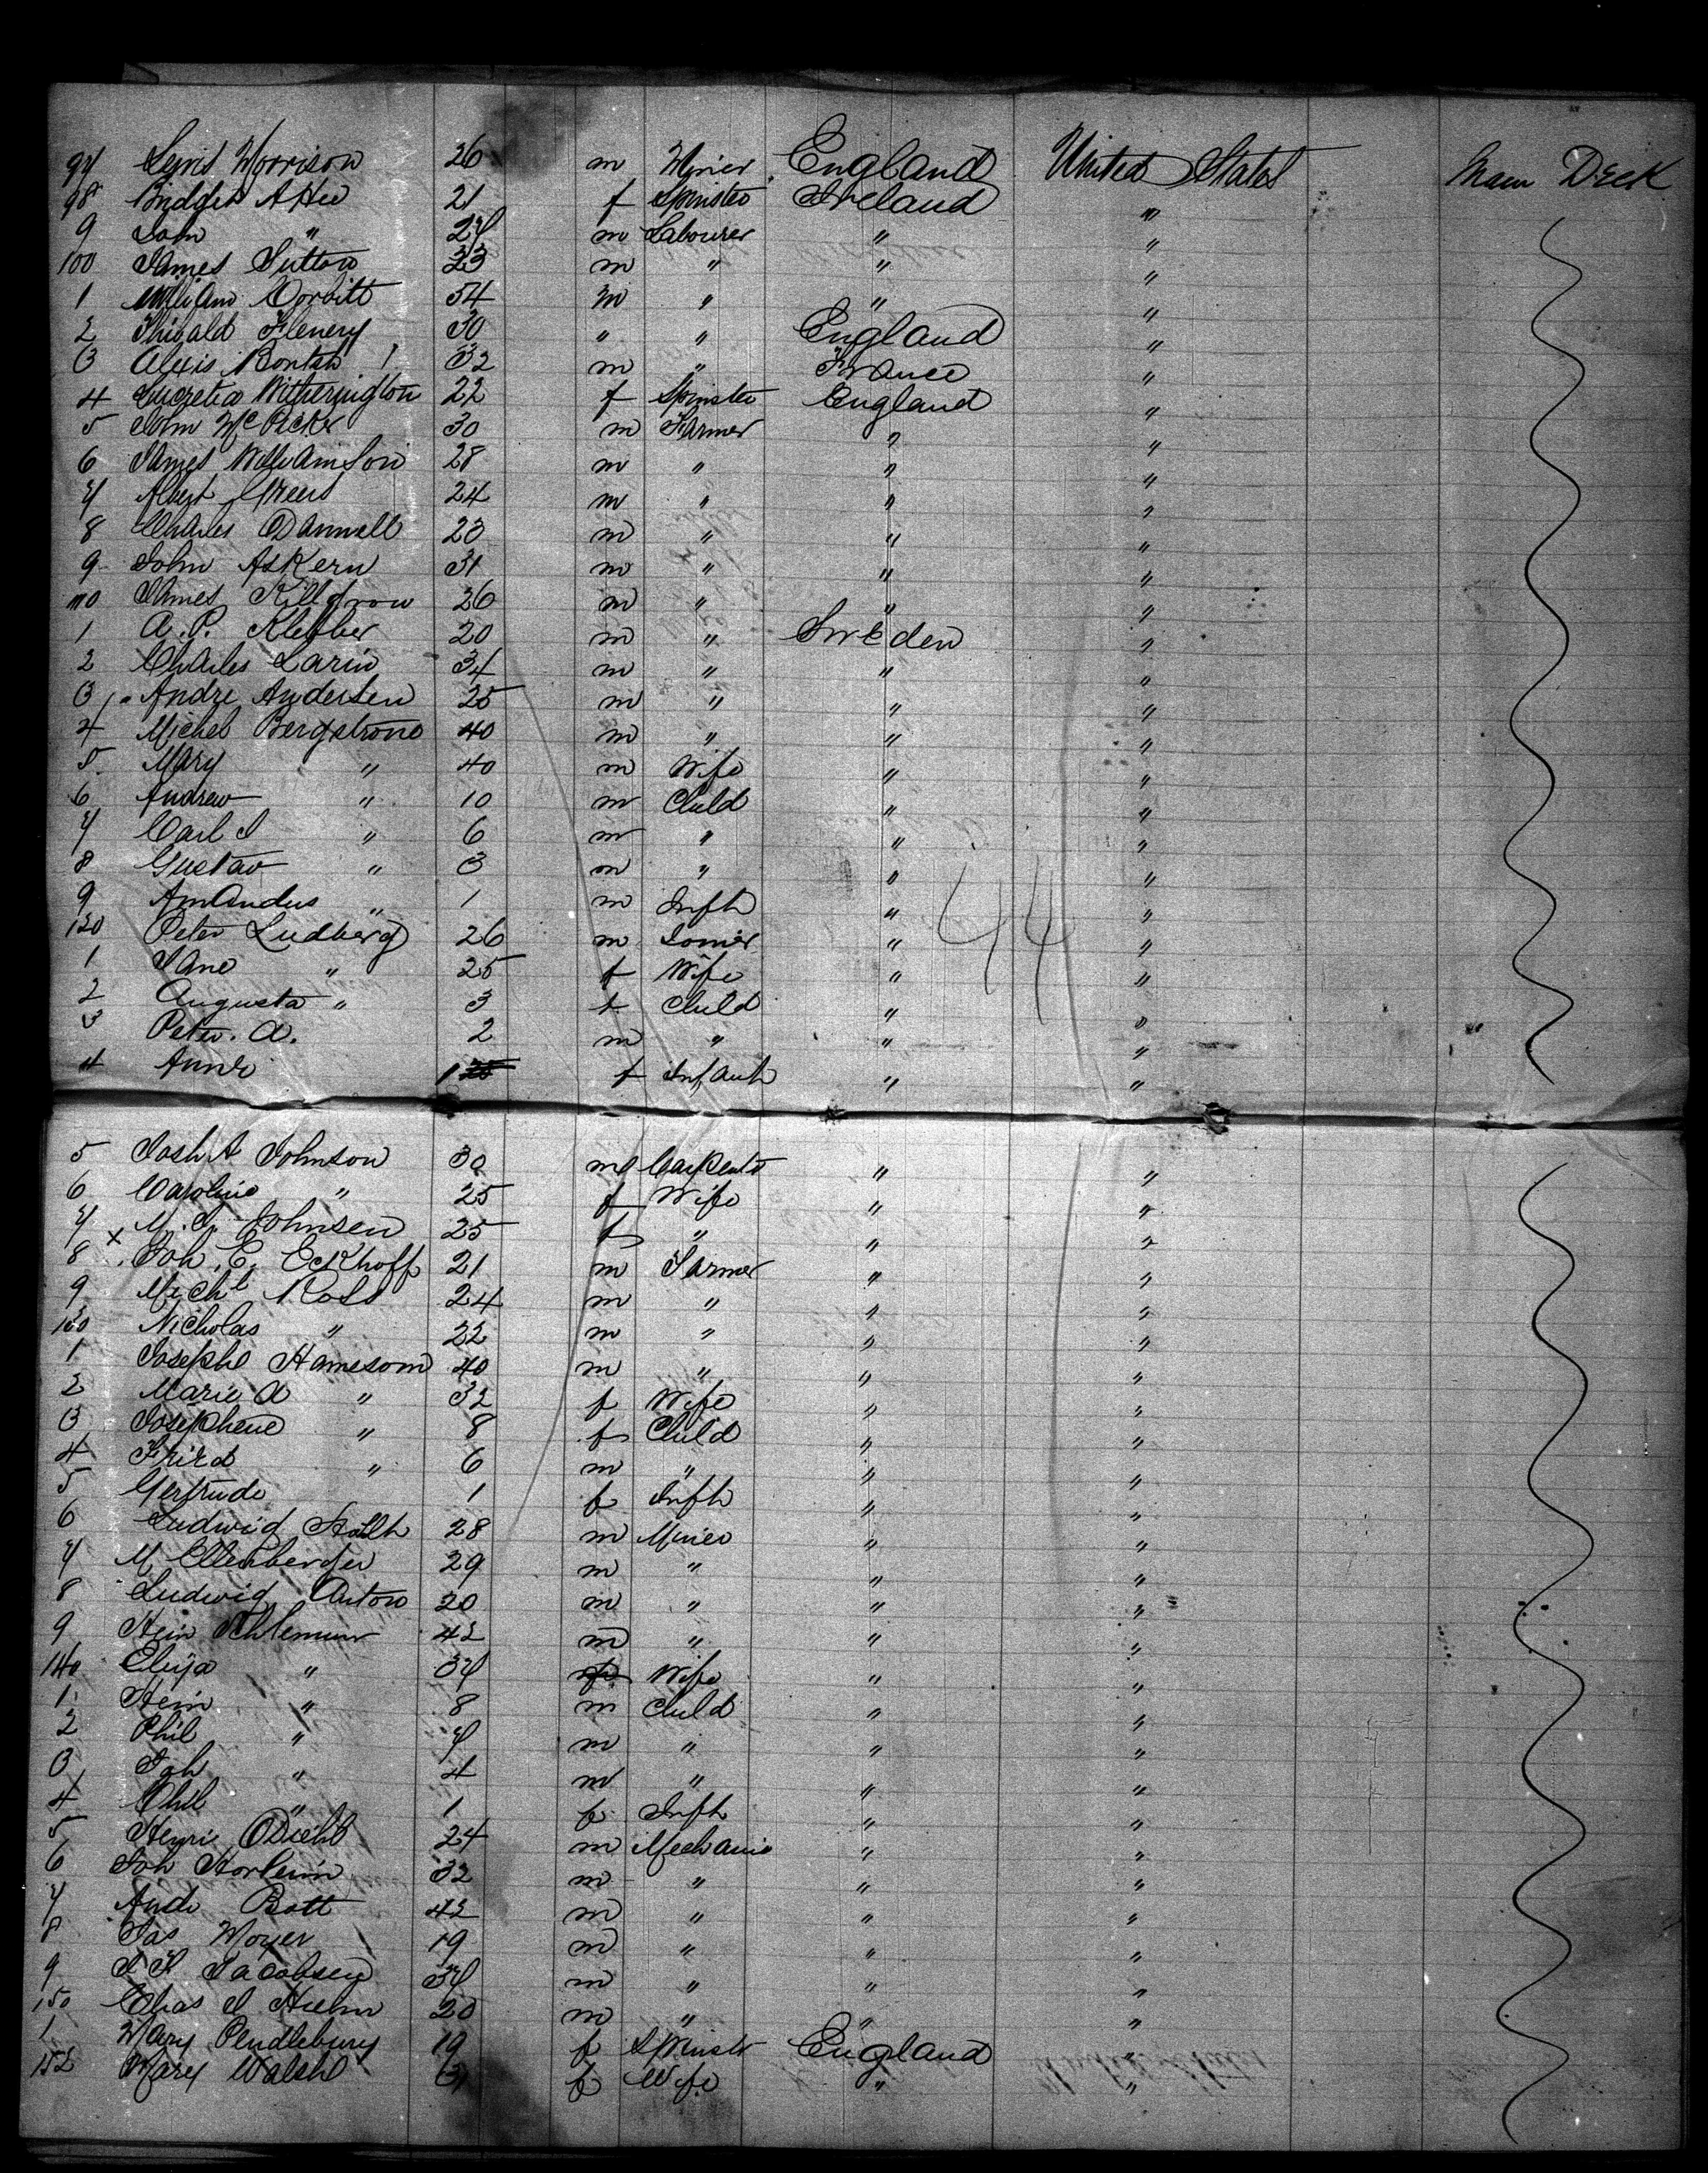 97 Lewis Morrison 26 m Miner England United States Main Deck
98 Bridget 21 f Spinster Ireland "
9 John " 27 m Labourer " "
100 James Sutton 33 m " " "
1 William Corbitt 54 m " " "
2 Flenery 30 " " England "
3 Alexis 32 m " France "
4 Lucretia Witherington 22 f Spinster England "
5 John McVicker 30 m Farmer " "
6 James Williamson 28 m " " "
7 Albert Green 24 m " " "
8 Charles Dannell 23 m " " "
9 John Askern 31 m " " "
110 James Killgrow 26 m " " "
1 A. P. 20 m " Sweden "
2 Charles Larin 34 m " " "
3 Andre Andersen 25 m " " "
4 Michel Bergstrono 40 m " " "
5 Mary " 40 m Wife " "
6 Andrew " 10 m Child " "
7 Carl I " 6 m " " "
8 Gustav " 3 m " " "
9 Amandus " 1 m Infh " "
120 Peter Ludberg 26 m " "
1 Jane " 25 f Wife " "
2 Augusta " 3 f Child " "
3 Peter. A. 2 m " " "
4 Anne 1 f Infant " "
44
5 Josh A Johnson 30 m Carpentr " "
6 Caroline " 25 f Wife " "
7 x M. Johnsen 25 f " " "
8 Joh. E. Eckhoff 21 m Farmer " "
9 Michl Ross 24 m " " "
130 Nicholas " 22 m " " "
1 Josephe Hamesom 40 m " " "
2 Marie A " 32 f Wife " "
3 Josephene " 8 f Child " "
4 Fried " 6 m " " "
5 Gertrude 1 f Infh " "
6 Ludwig 28 m Miner " "
7 M Ellenberger 29 m " " "
8 Ludwig Anton 20 m " " "
9 Hein 42 m " " "
140 Eliza " 37 f Wife " "
1 Hein " 8 m Child " "
2 Phil " 7 m " " "
3 Joh " 4 m " " "
4 Phil " 1 f Infh " "
5 Henri Diehl 24 m Mechanic " "
6 Joh 32 m " " "
7 Andr Bott 42 m " " "
8 Jas Moyer 19 m " " "
9 Jacobsen 37 m " " "
150 Chas I 20 m " " "
1 Mary Pendlebury 19 f Spinstr England "
152 Mary Walsh 31 f Wife " "